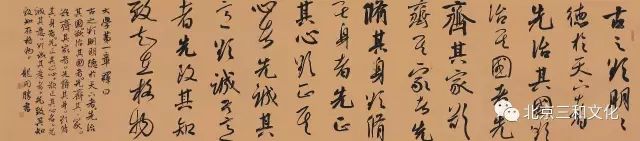 古之欲明明
德於天下者
先治其國欲
治其國者先
齊其家欲
齊其家者先
脩其身欲脩
其身者先正
其心欲正其
心者先誠其
意欲誠其意
者先致其知
致知在格物
大學第一章釋曰
古之欲明明德於天下者先治
其國欲治其國者先齊其家
欲齊其家者先脩其身欲脩
其身者先正其心欲正其心者先
誠其意欲誠其意者先致其知
致知在格物 龍開勝書
北京三和文化